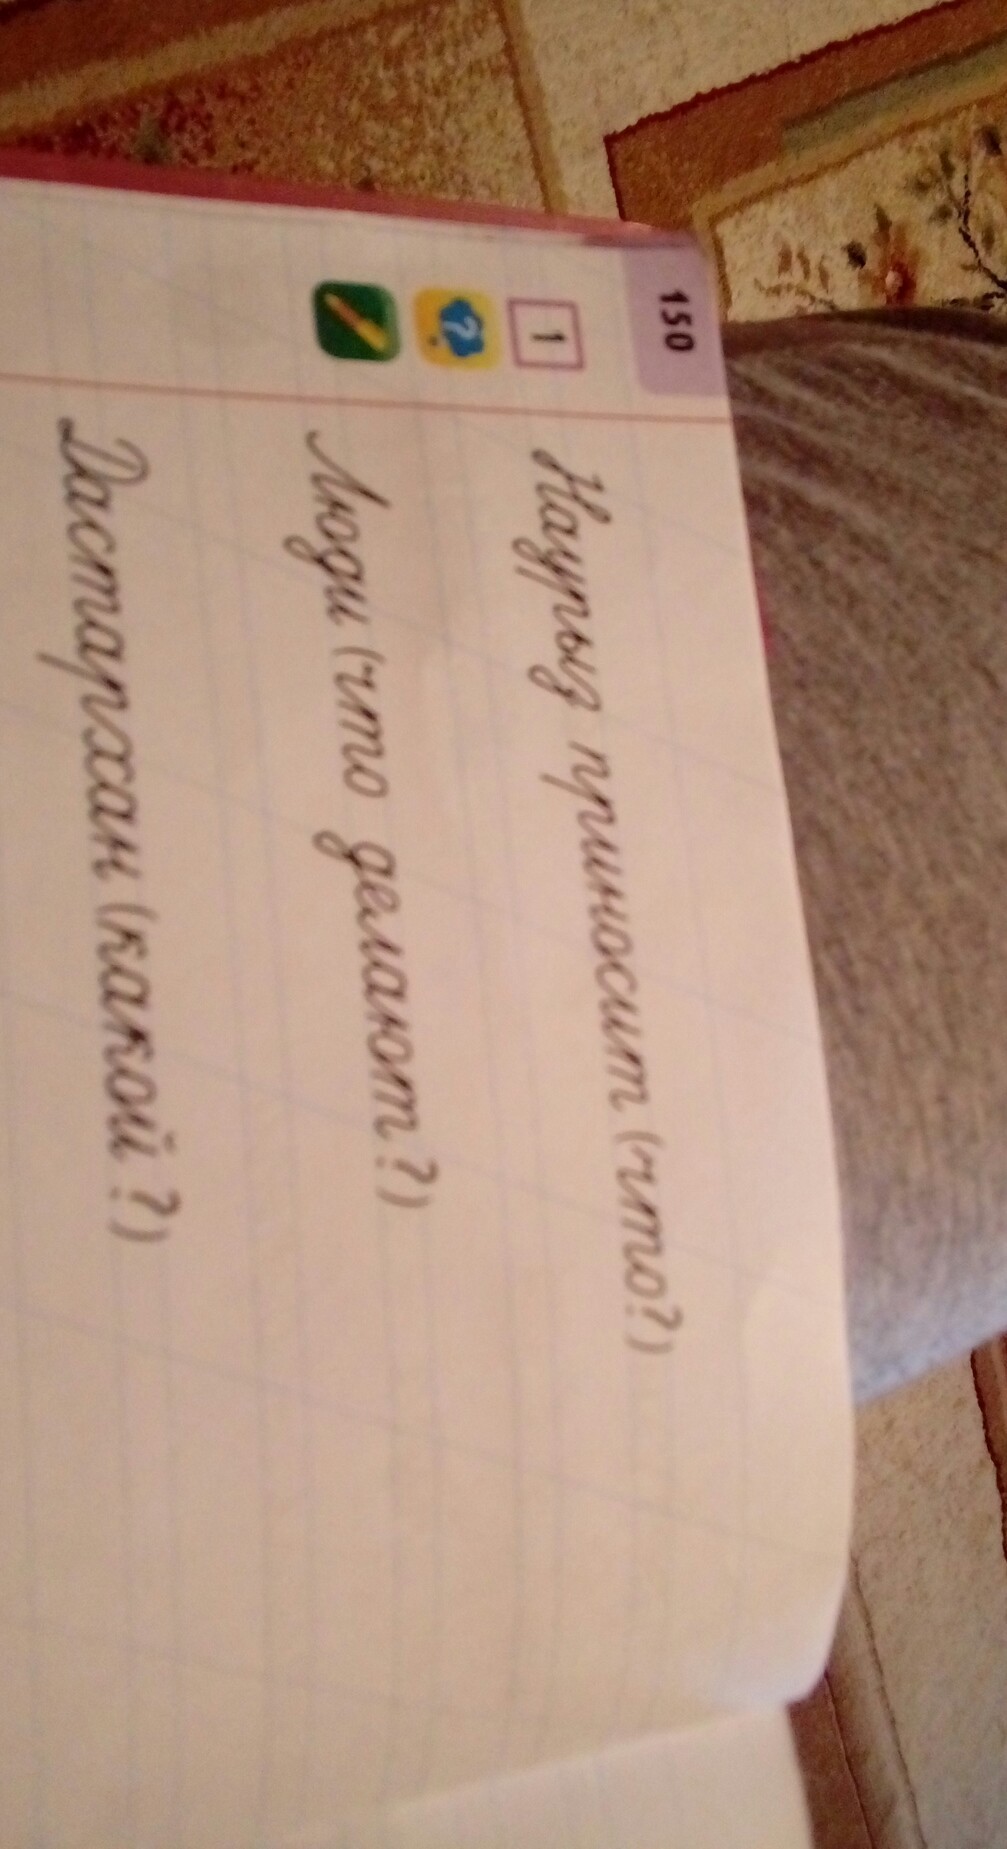 150
1
Наурыз приносит (что?)
?
Люди (что делают?)
Дастархан (какой?)